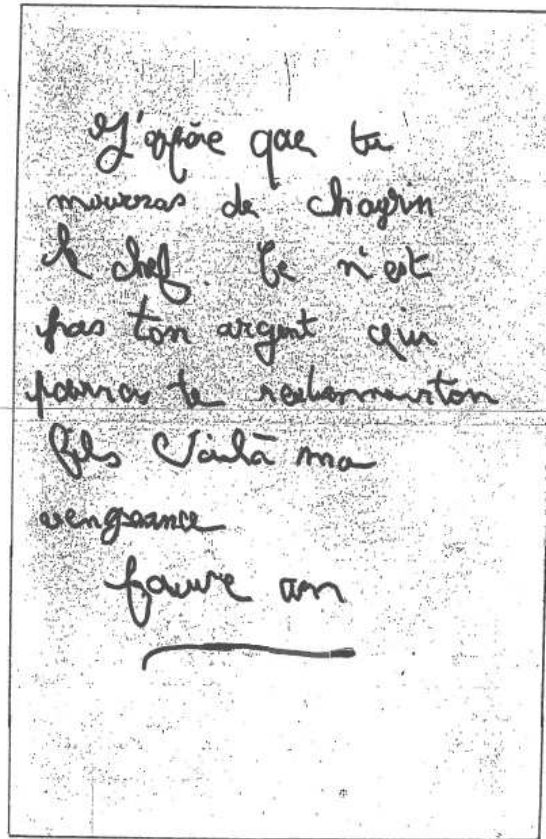 J'espère que tu
mourras de chagrin
le chef. Ce n'est
pas ton argent qui
pourra te redonner ton
fils Voilà ma
vengeance
pauvre con